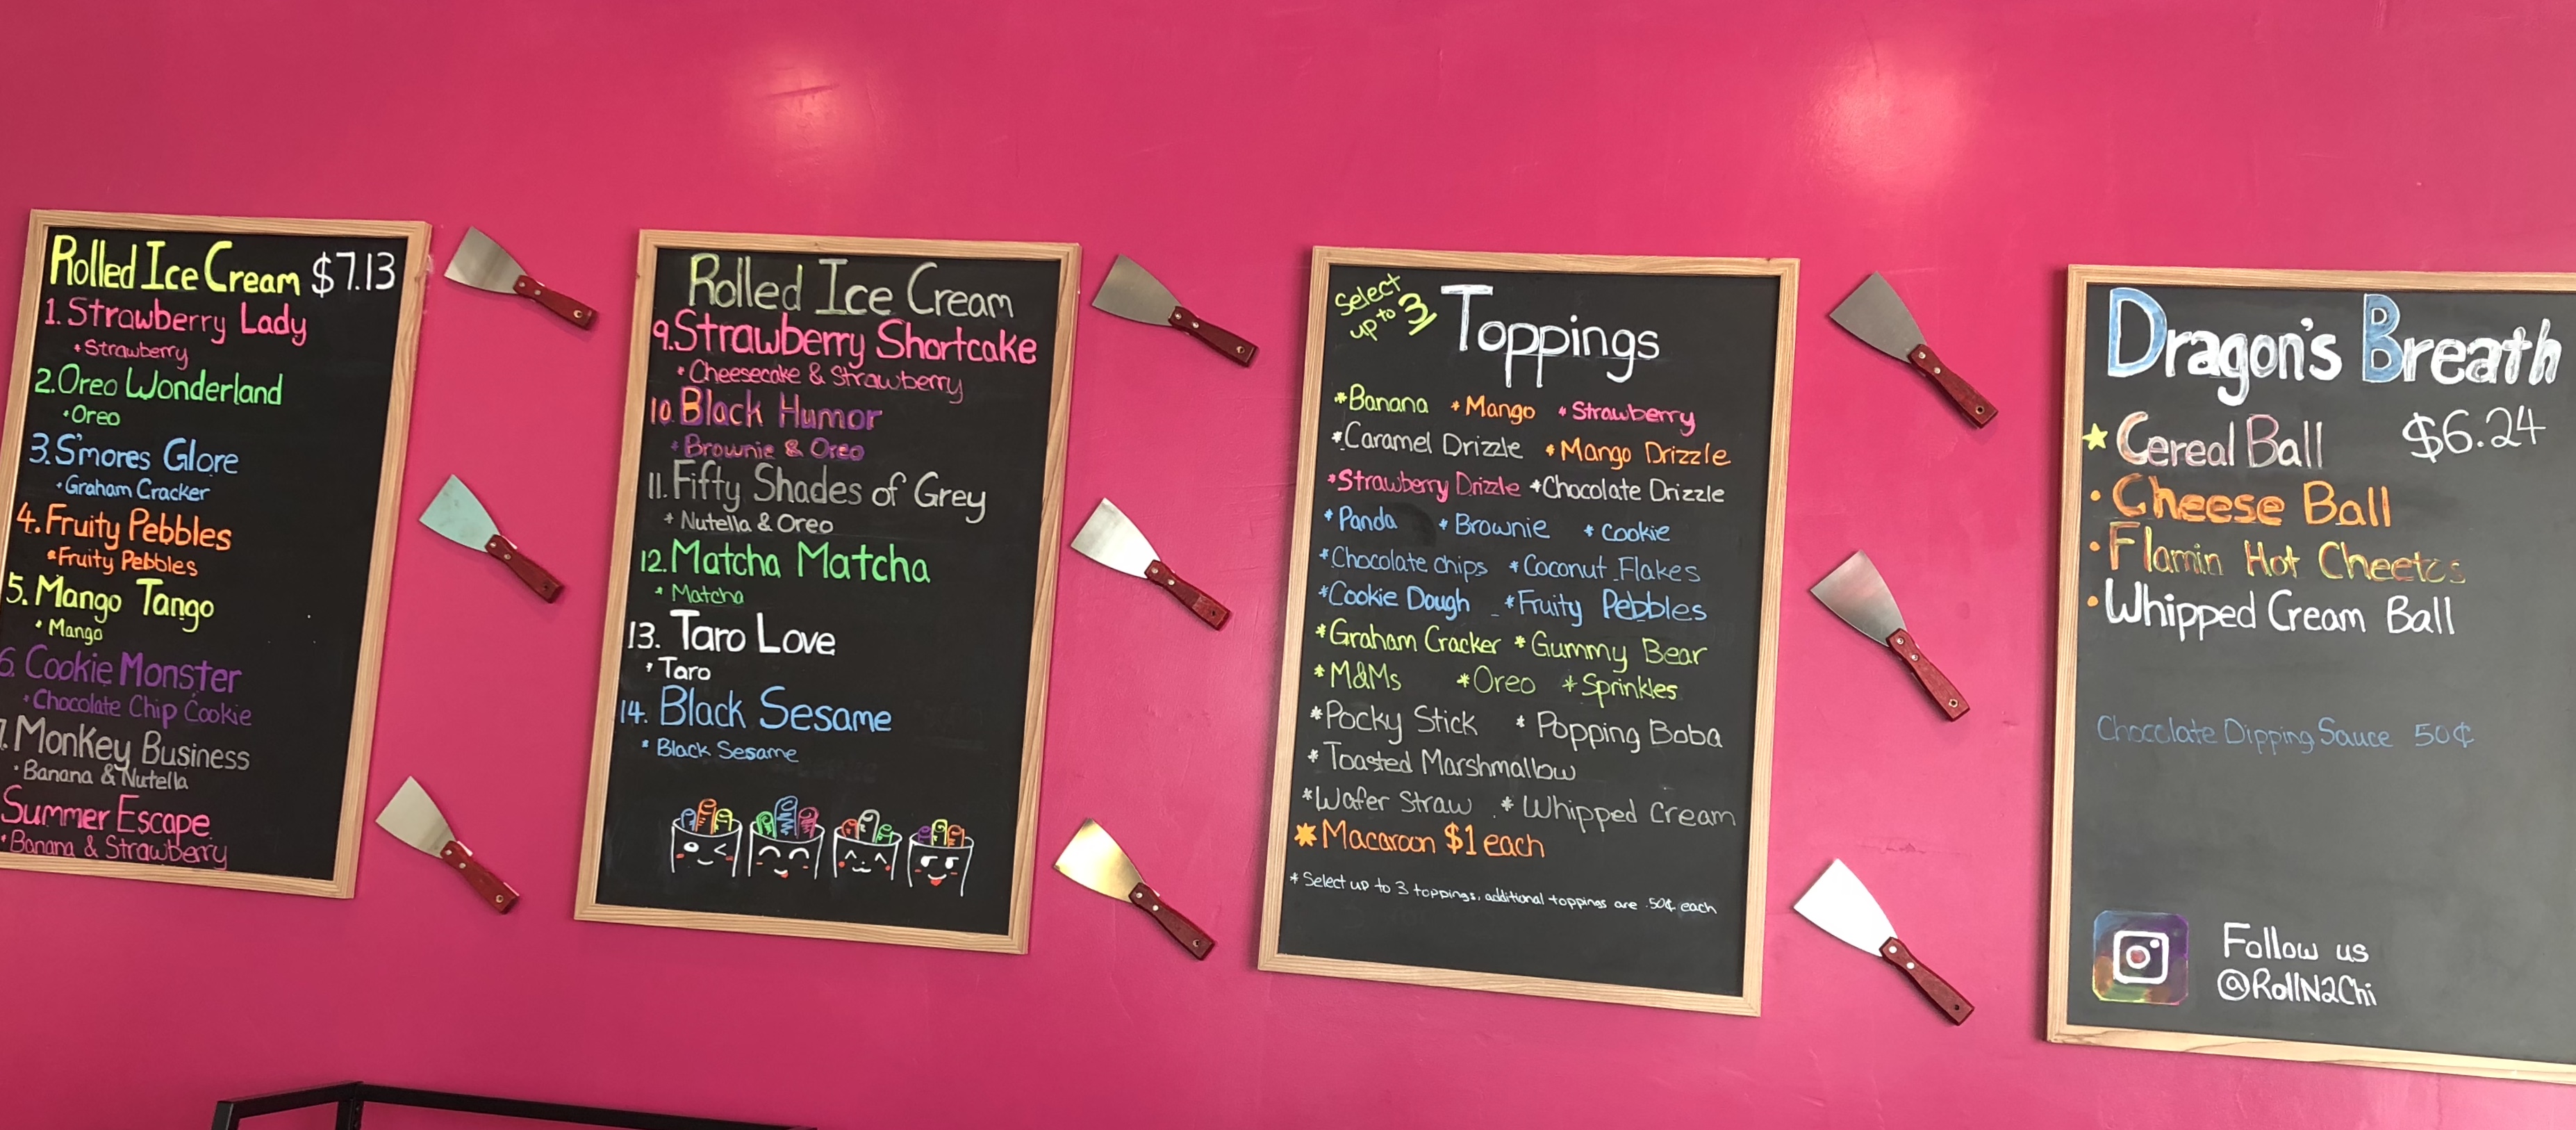 Rolled Ice Cream $7.13
1. Strawberry Lady
• Strawberry
2. Oreo Wonderland
• Oreo
3. S'mores Glore
• Graham Cracker
4. Fruity Pebbles
• Fruity Pebbles
5. Mango Tango
• Mango
6. Cookie Monster
• Chocolate Chip Cookie
7. Monkey Business
• Banana & Nutella
Summer Escape
• Banana & Strawberry
Rolled Ice Cream
9. Strawberry Shortcake
• Cheesecake & Strawberry
10. Black Humor
• Brownie & Oreo
11. Fifty Shades of Grey
* Nutella & Oreo
12. Matcha Matcha
* Matcha
13. Taro Love
* Taro
14. Black Sesame
* Black Sesame
Select
up to 3
Toppings
*Banana *Mango *Strawberry
*Caramel Drizzle *Mango Drizzle
*Strawberry Drizzle *Chocolate Drizzle
*Panda *Brownie *Cookie
*Chocolate chips *Coconut Flakes
*Cookie Dough *Fruity Pebbles
*Graham Cracker *Gummy Bear
*M&Ms *Oreo *Sprinkles
*Pocky Stick *Popping Boba
*Toasted Marshmallow
*Wafer Straw *Whipped Cream
*Macaroon $1 each
* Select up to 3 toppings, additional toppings are .50¢ each
Dragon's Breath
Cereal Ball $6.24
• Cheese Ball
• Flamin Hot Cheetos
• Whipped Cream Ball
Chocolate Dipping Sauce 50¢
Follow us
@RollN2Chi